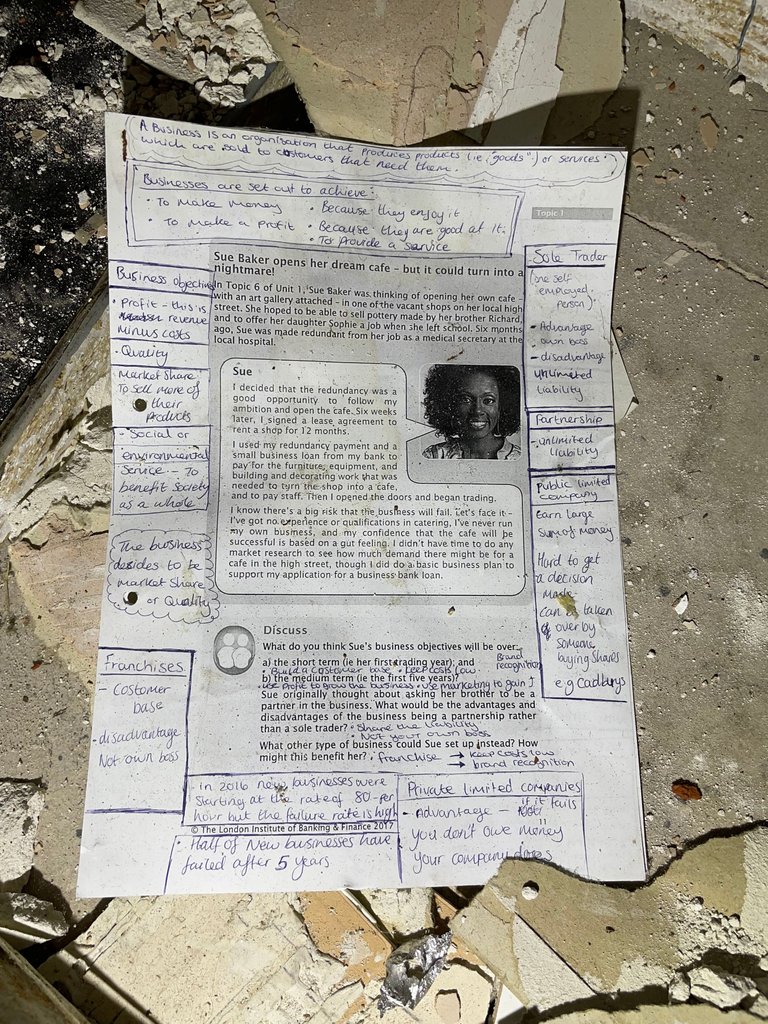 A Business is an organisation that produces products (i.e. "goods") or services
which are sold to customers that need them.
Businesses are set out to achieve:
• To make money
• Because they enjoy it
• To make a profit
• Because they are good at it.
• To provide a service
Topic 1
Sue Baker opens her dream cafe – but it could turn into a
nightmare!
In Topic 6 of Unit 1, Sue Baker was thinking of opening her own cafe –
with an art gallery attached – in one of the vacant shops on her local high
street. She hoped to be able to sell pottery made by her brother Richard,
and to offer her daughter Sophie a job when she left school. Six months
ago, Sue was made redundant from her job as a medical secretary at the
local hospital.
Business objective
• Profit – this is
revenue
minus costs
• Quality
Market share
To sell more of
their
products
• Social or
environmental
Service – To
benefit society
as a whole
The business
decides to be
market share
or Quality
Sue
I decided that the redundancy was a
good opportunity to follow my
ambition and open the cafe. Six weeks
later, I signed a lease agreement to
rent a shop for 12 months.
I used my redundancy payment and a
small business loan from my bank to
pay for the furniture, equipment, and
building and decorating work that was
needed to turn the shop into a cafe,
and to pay staff. Then I opened the doors and began trading.
I know there's a big risk that the business will fail. Let's face it –
I've got no experience or qualifications in catering, I've never run
my own business, and my confidence that the cafe will be
successful is based on a gut feeling. I didn't have time to do any
market research to see how much demand there might be for a
cafe in the high street, though I did do a basic business plan to
support my application for a business bank loan.
Sole Trader
(one self
employed
person)
- Advantage
own boss
- disadvantage
unlimited
liability
Partnership
- unlimited
liability
Public limited
company
Earn large
sum of money
Hard to get
a decision
made
can be taken
over by
someone
buying shares
e.g Cadburys
Discuss
What do you think Sue's business objectives will be over:
a) the short term (ie her first trading year); and
• Build a costomer base • keep costs low
b) the medium term (ie the first five years)?
• use profit to grow the business • use marketing to gain
Brand
recognition
Sue originally thought about asking her brother to be a
partner in the business. What would be the advantages and
disadvantages of the business being a partnership rather
than a sole trader? • Share the liability
• Not your own boss
What other type of business could Sue set up instead? How
might this benefit her? • franchise → keep costs low
→ brand recognition
Franchises
- costomer
base
- disadvantage
Not own boss
• in 2016 new businesses were
starting at the rate of 80 per
hour but the failure rate is high
© The London Institute of Banking & Finance 2017
• Half of New businesses have
failed after 5 years
Private limited companies
• Advantage – if it fails
you don't owe money
your company does